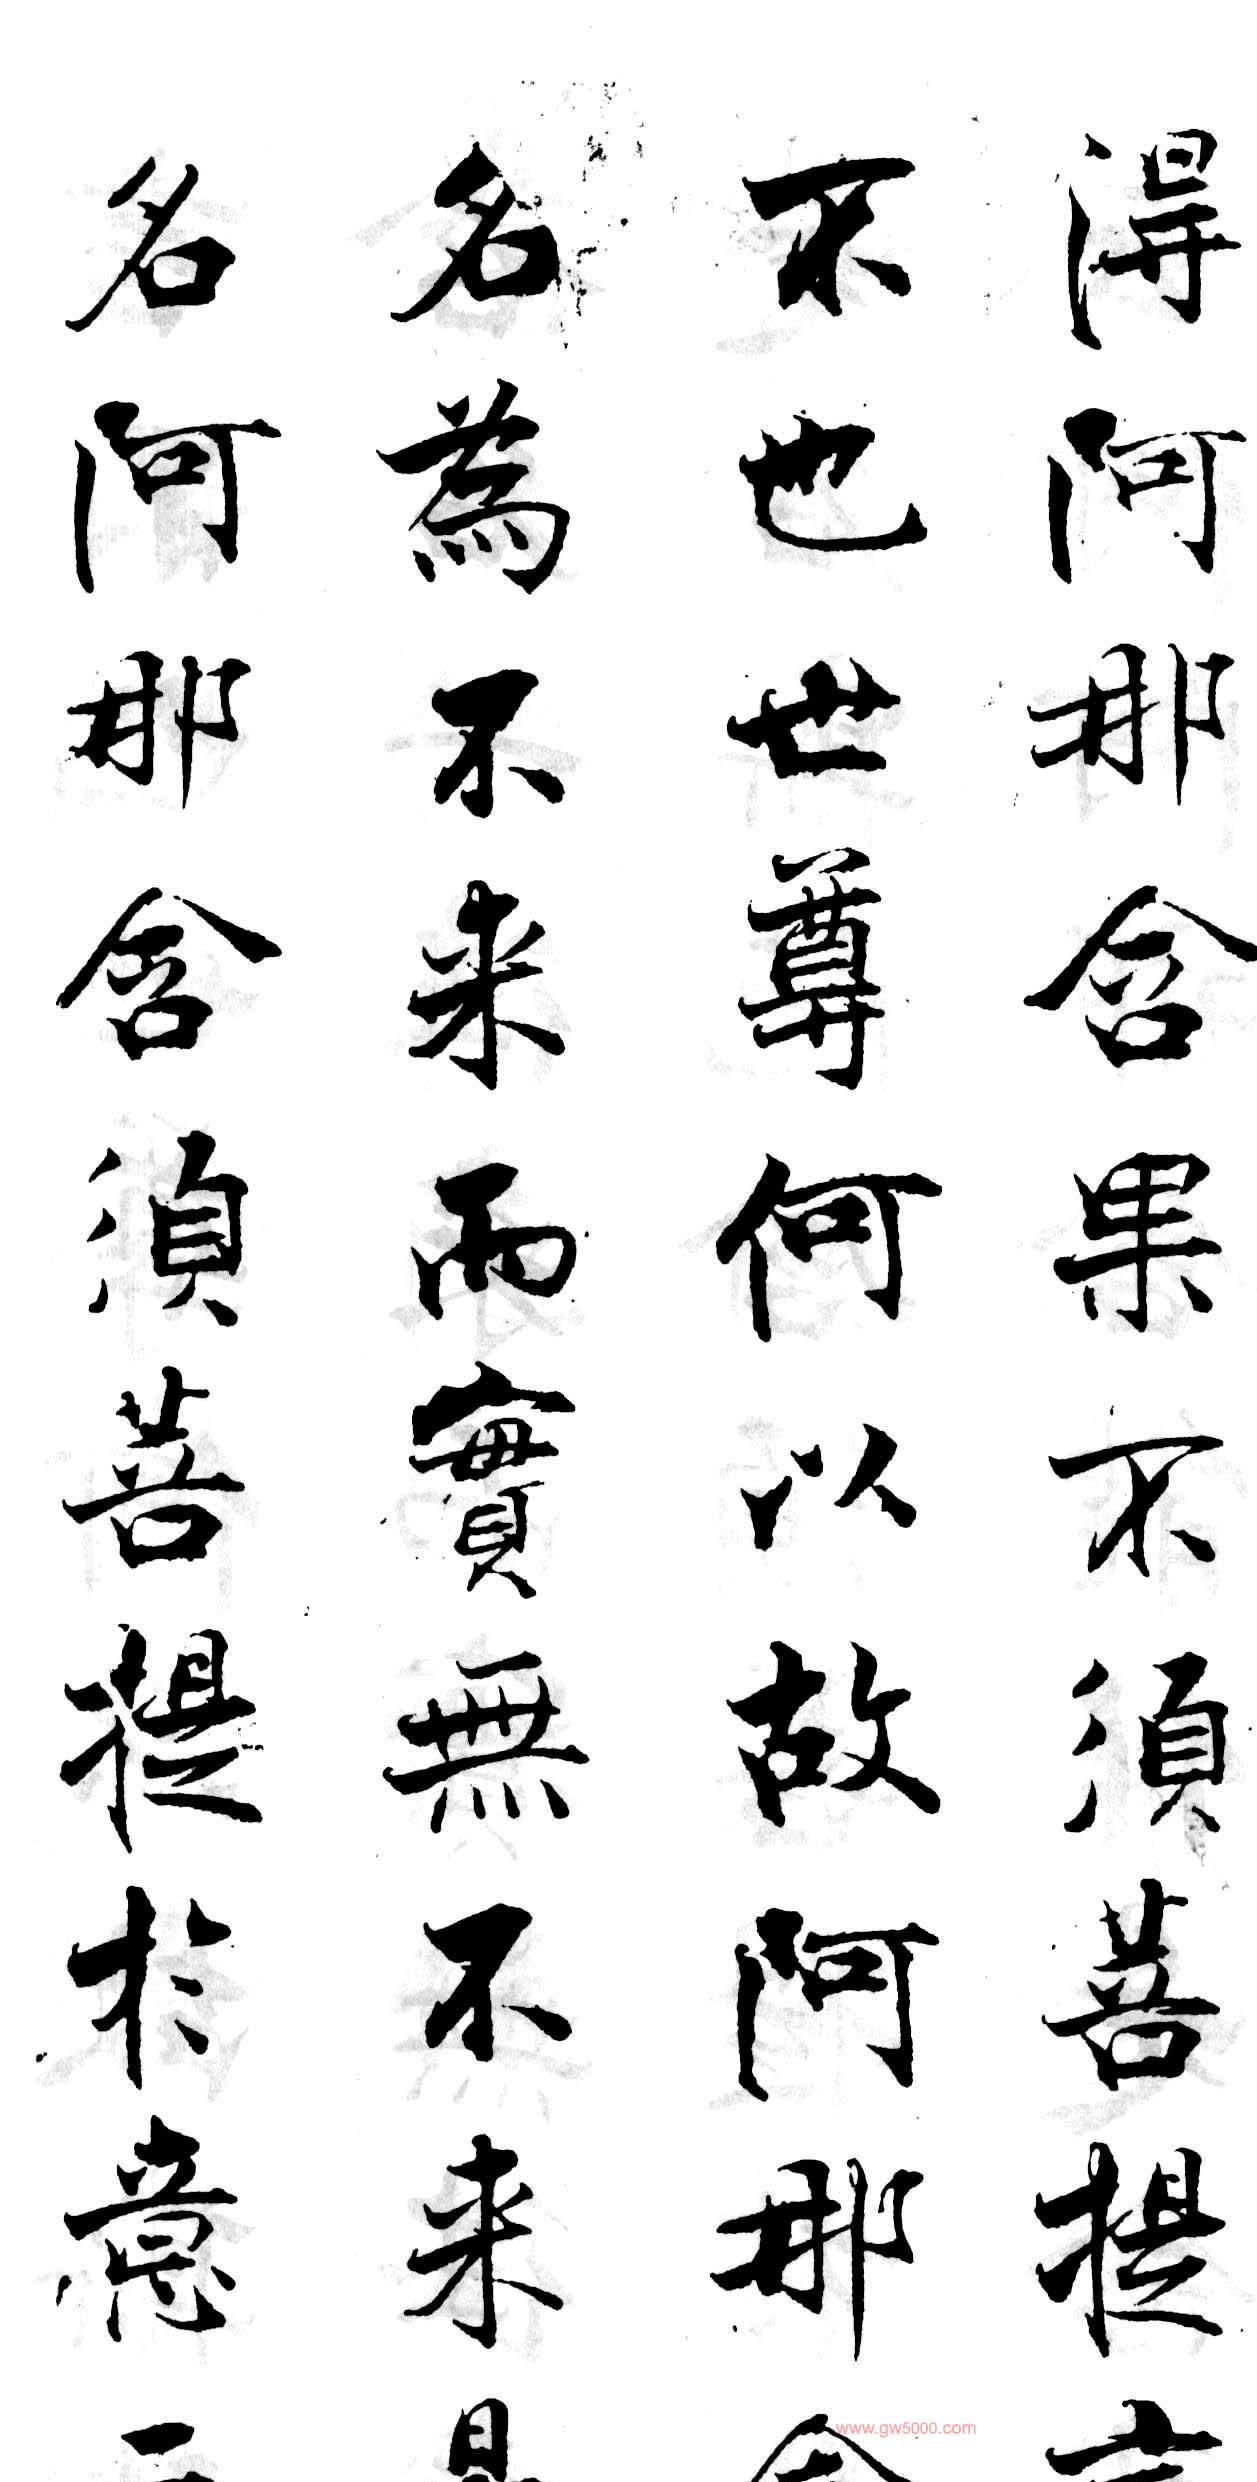 得阿那含果不須菩提言
不也世尊何以故阿那含
名為不来而實無不来是
名阿那含須菩提於意云
www.gw5000.com